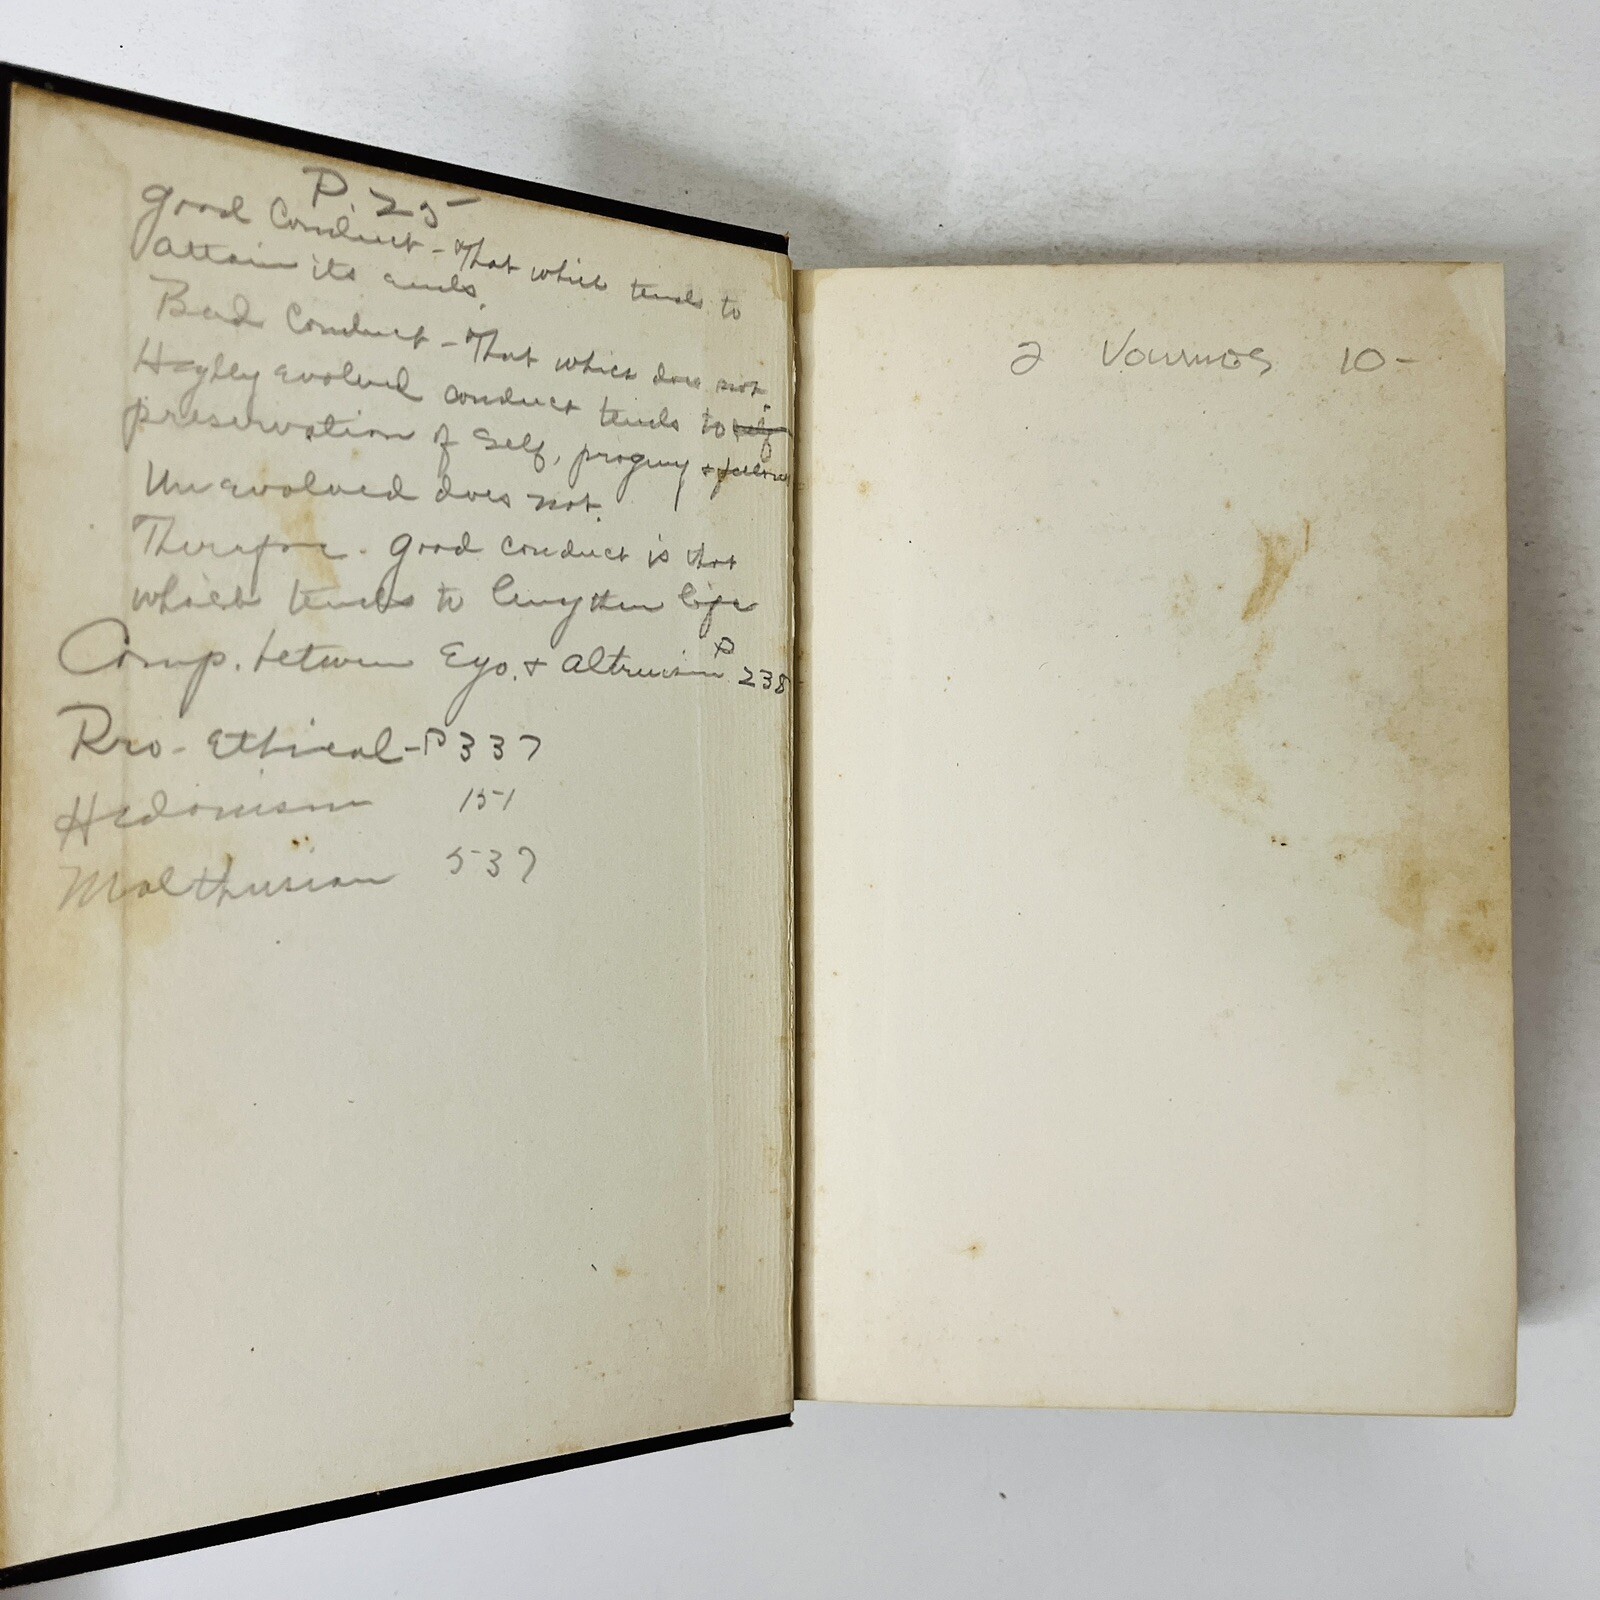 P. 25
Good Conduct - That which tends to
attain its ends.
Bad Conduct - That which does not.
Highly evolved conduct tends to self
preservation of self, progeny + fellows
Unevolved does not.
Therefore. Good conduct is that
which tends to lengthen life
Comp. between Ego. + Altruism P 238
Pro-Ethical - P 337
Hedonism 151
Malthusian 537
2 Volumes 10-